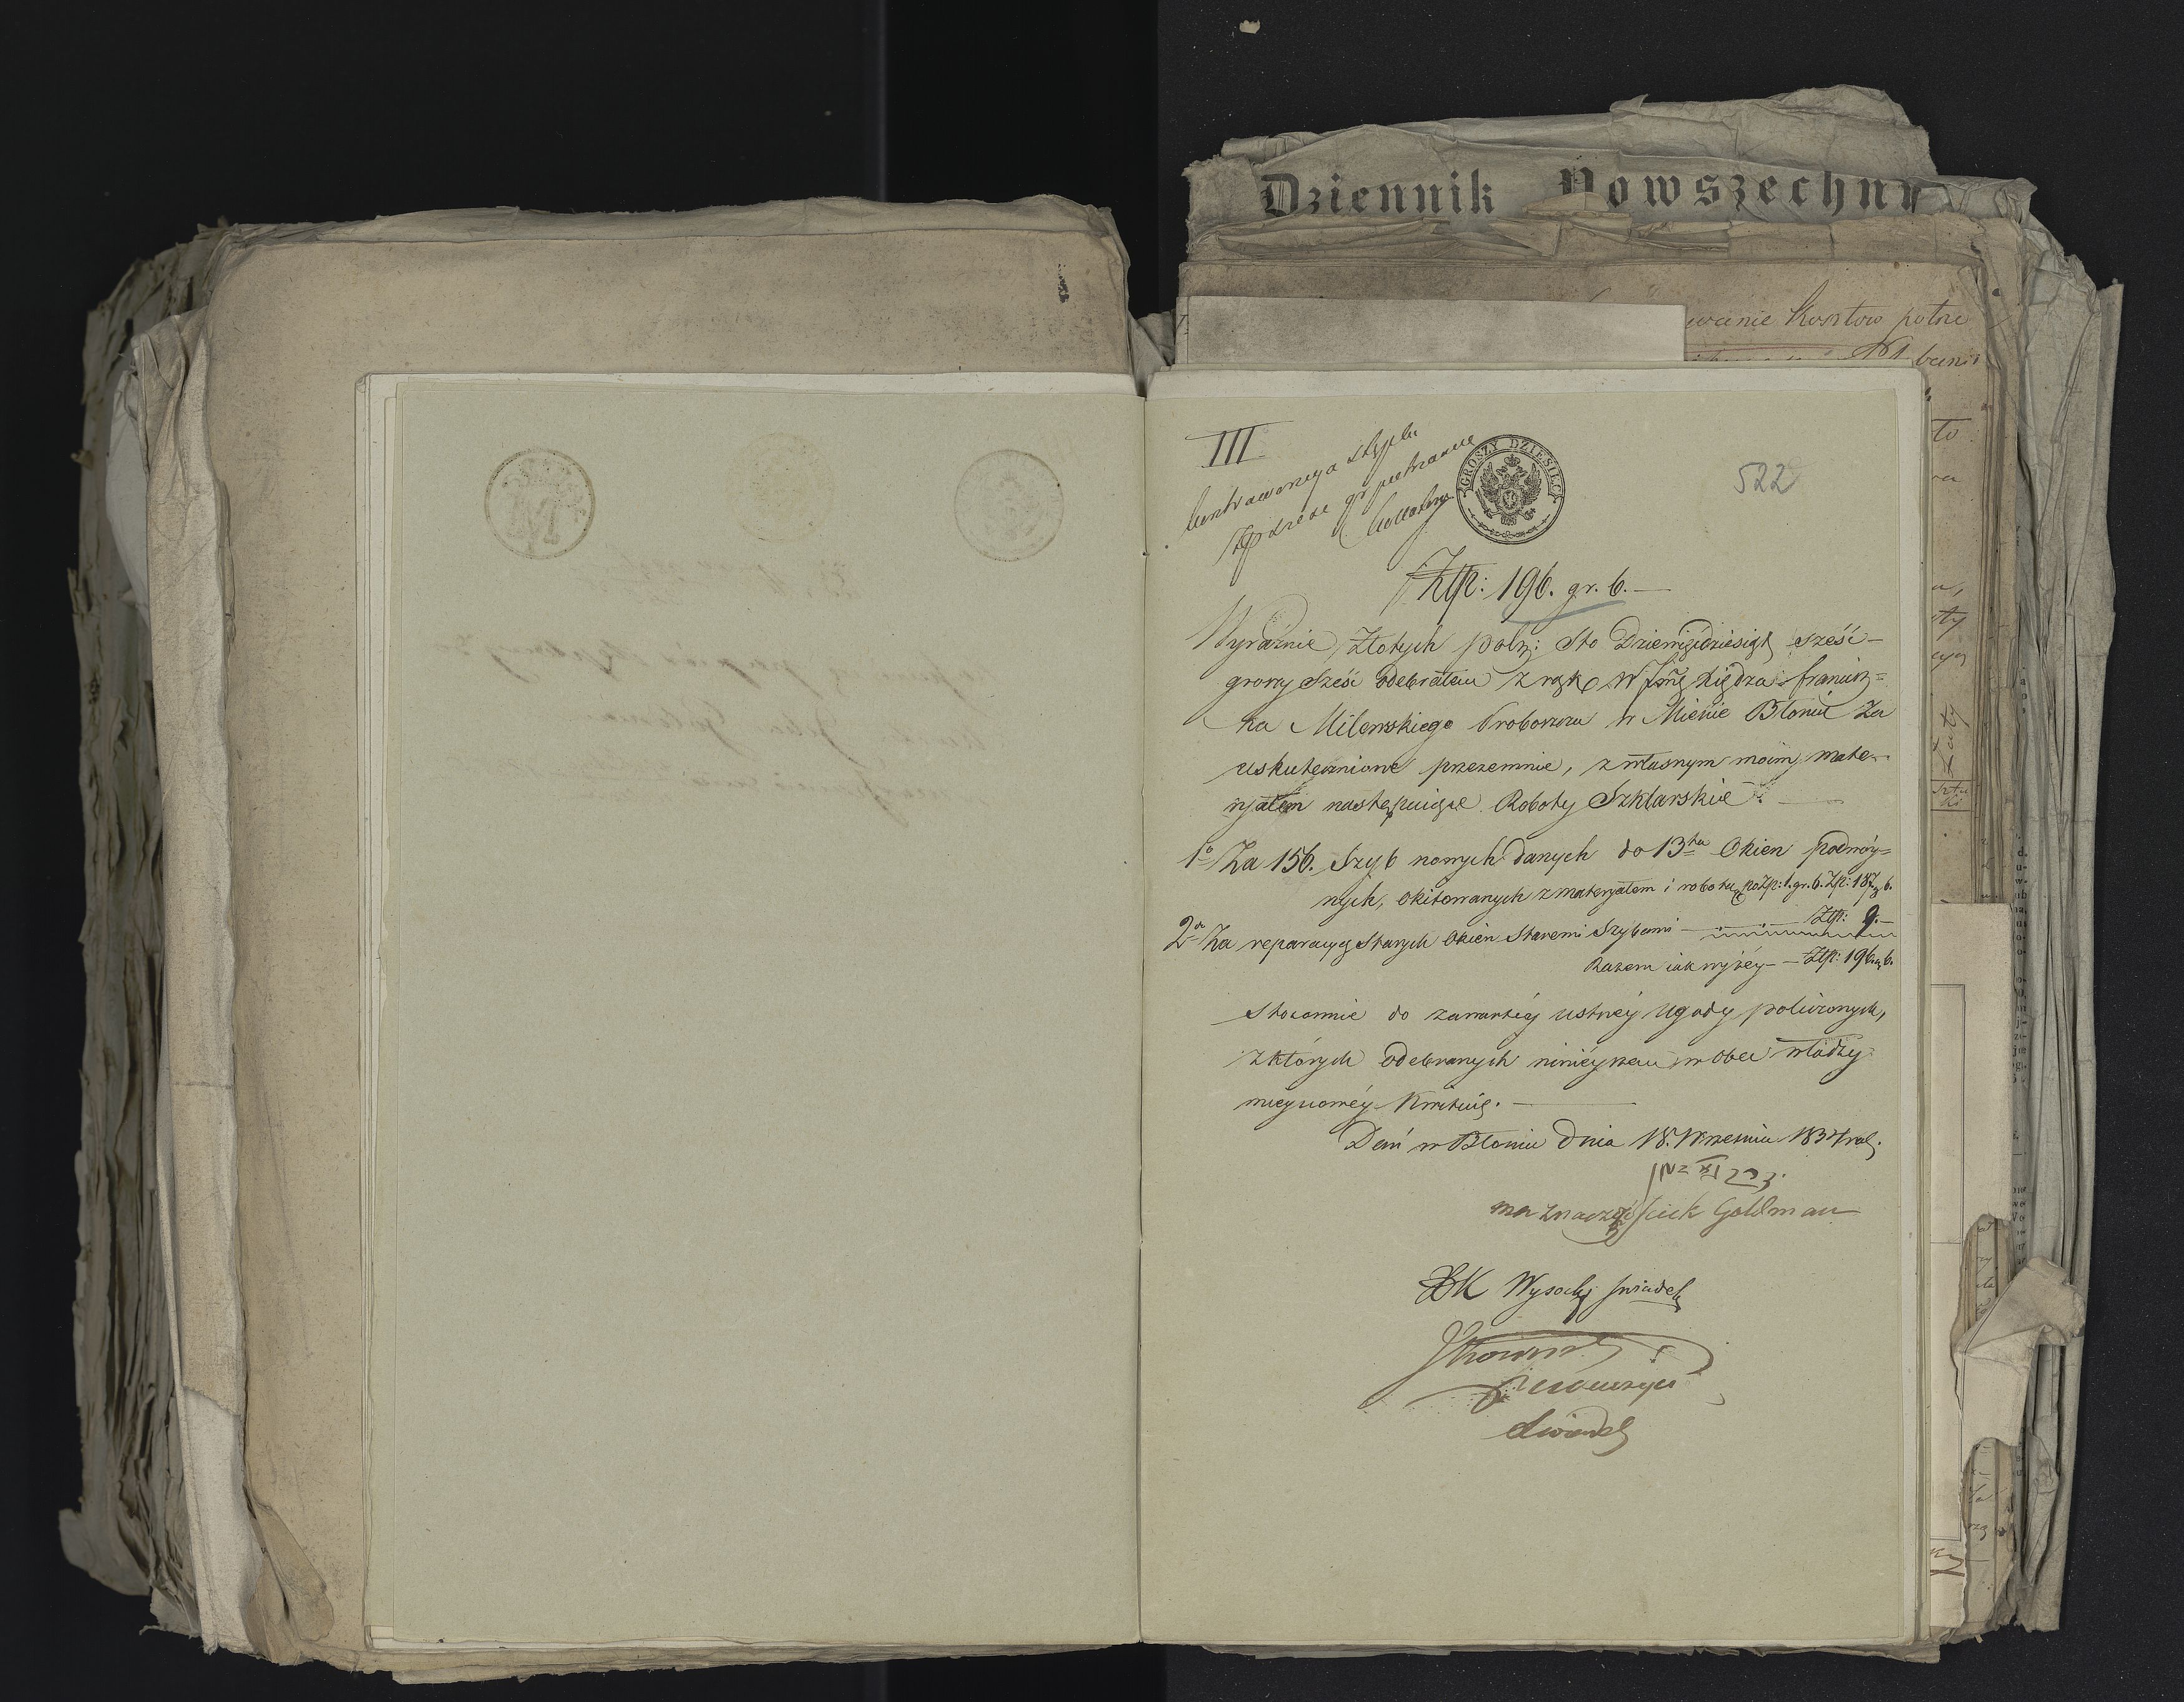 Dziennik Powszechny
wanie Kosztow potrze
III
522
GROSZY DZIESIĘĆ
Złp: 196. gr. 6.—
Wyraźnie Złotych polz: Sto Dziewięćdziesiąt sześć—
groszy sześć odebrałem z rąk W Jmę Xiędza Francisz=
ka Milewskiego Proboszcza w Mieście Błoniu za
uskutecznione przezemnie, z własnym moim mate-
ryałem następuiące Roboty Szklarskie:
1o Za 156. Szyb nowych danych do 13tu Okien podwóy=
nych, okitowanych z materyałem i robotą po Złp: 1. gr. 6. Złp: 187 g 6.
2o Za reparacyą Starych Okien Staremi Szybami — Złp: 9.—
Razem iak wyżey — Złp: 196 g 6.
Stosownie do zawartéy ustnéy ugody policzonych,
z których odebranych ninieyszem w obec władzy
mieyscowéy Kwituię.—
Dań w Błoniu dnia 18. Września 1834 rok.
ma znaczyć Goldman
XK Wysocki świadek
świadek